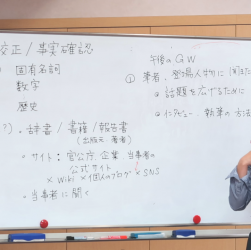 校正/事実確認
固有名詞
数字
歴史
?) ・辞書/書籍/報告書
(出版元・著者)
・サイト:官公庁、企業、当事者の
公式サイト
×wiki ×個人のブログ ×SNS
・当事者に聞く
午後の GW
① 筆者・登場人物に
話題を広げるために
インタビュー・執筆の方法